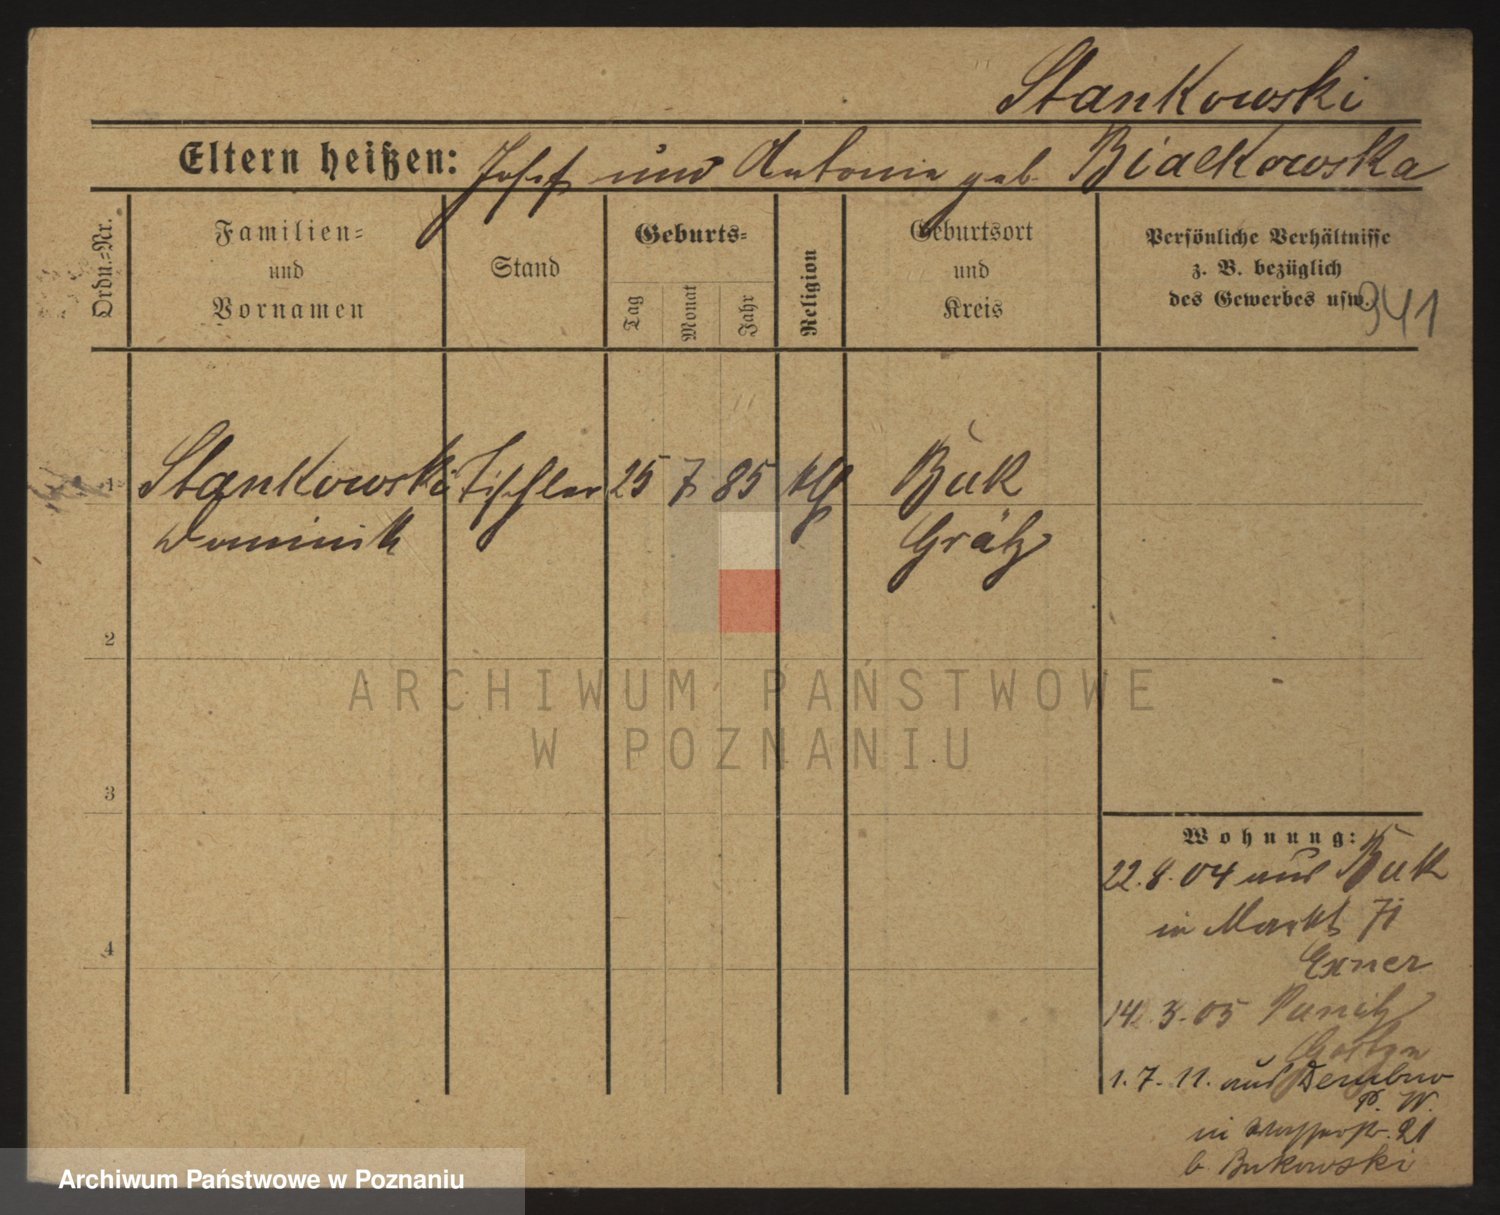 Stankowski
Eltern heißen: Josef und Antonie geb. Bialkowska
Ordn.-Nr.
Familien-
und
Vornamen
Stand
Geburts-
Tag
Monat
Jahr
Religion
Geburtsort
und
Kreis
Persönliche Verhältnisse
z. B. bezüglich
des Gewerbes usw.
941
1 Stankowski Tischler 25 7 85 klg Buk
Dominik Grätz
2
ARCHIWUM PAŃSTWOWE
W POZNANIU
3
Wohnung:
22.8.04 aus Buk
in Markt 71
Exner
4
14.3.05
Gostyn
1.7.11. aus Dembno
P. W.
in Wasserstr. 21
b. Bukowski
Archiwum Państwowe w Poznaniu